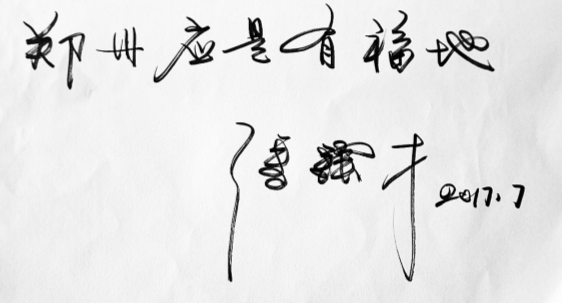 郑州应是有福地
2017.7